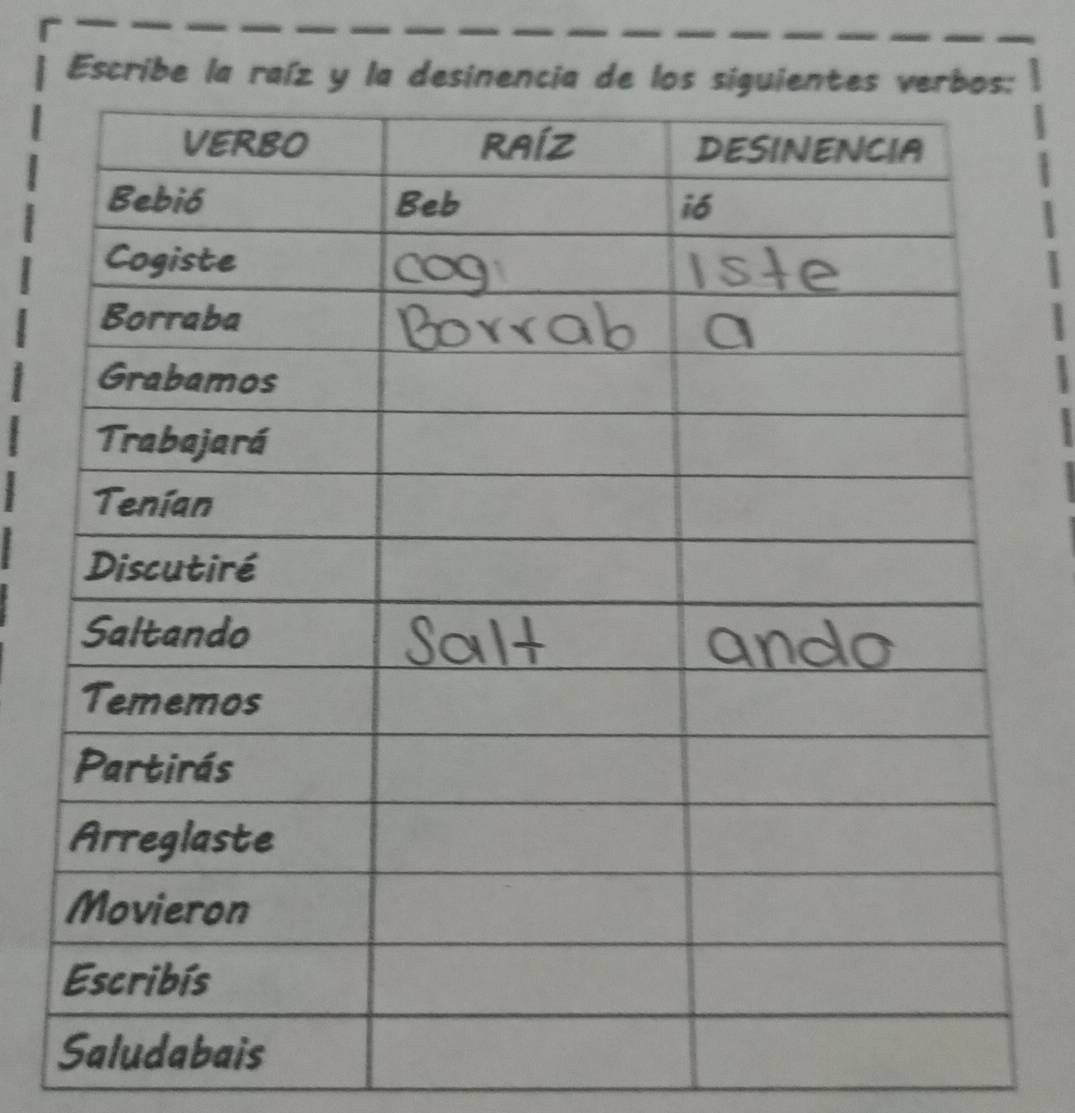 Escribe la raíz y la desinencia de los siguientes verbos:
VERBO RAÍZ DESINENCIA
Bebió Beb ió
Cogiste cog iste
Borraba Borrab a
Grabamos
Trabajará
Tenían
Discutiré
Saltando Salt ando
Tememos
Partirás
Arreglaste
Movieron
Escribís
Saludabais